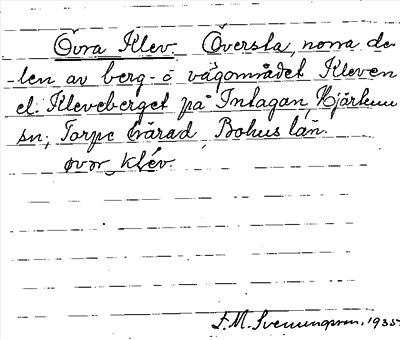 Övra Klev. Översta, norra de-
-len av berg- o vägområdet Kleven
el. Kleveberget på Intagan, Hjärtum
sn, Torpe härad, Bohus län.
øvər klév.
F.M. Svenungsson. 1935